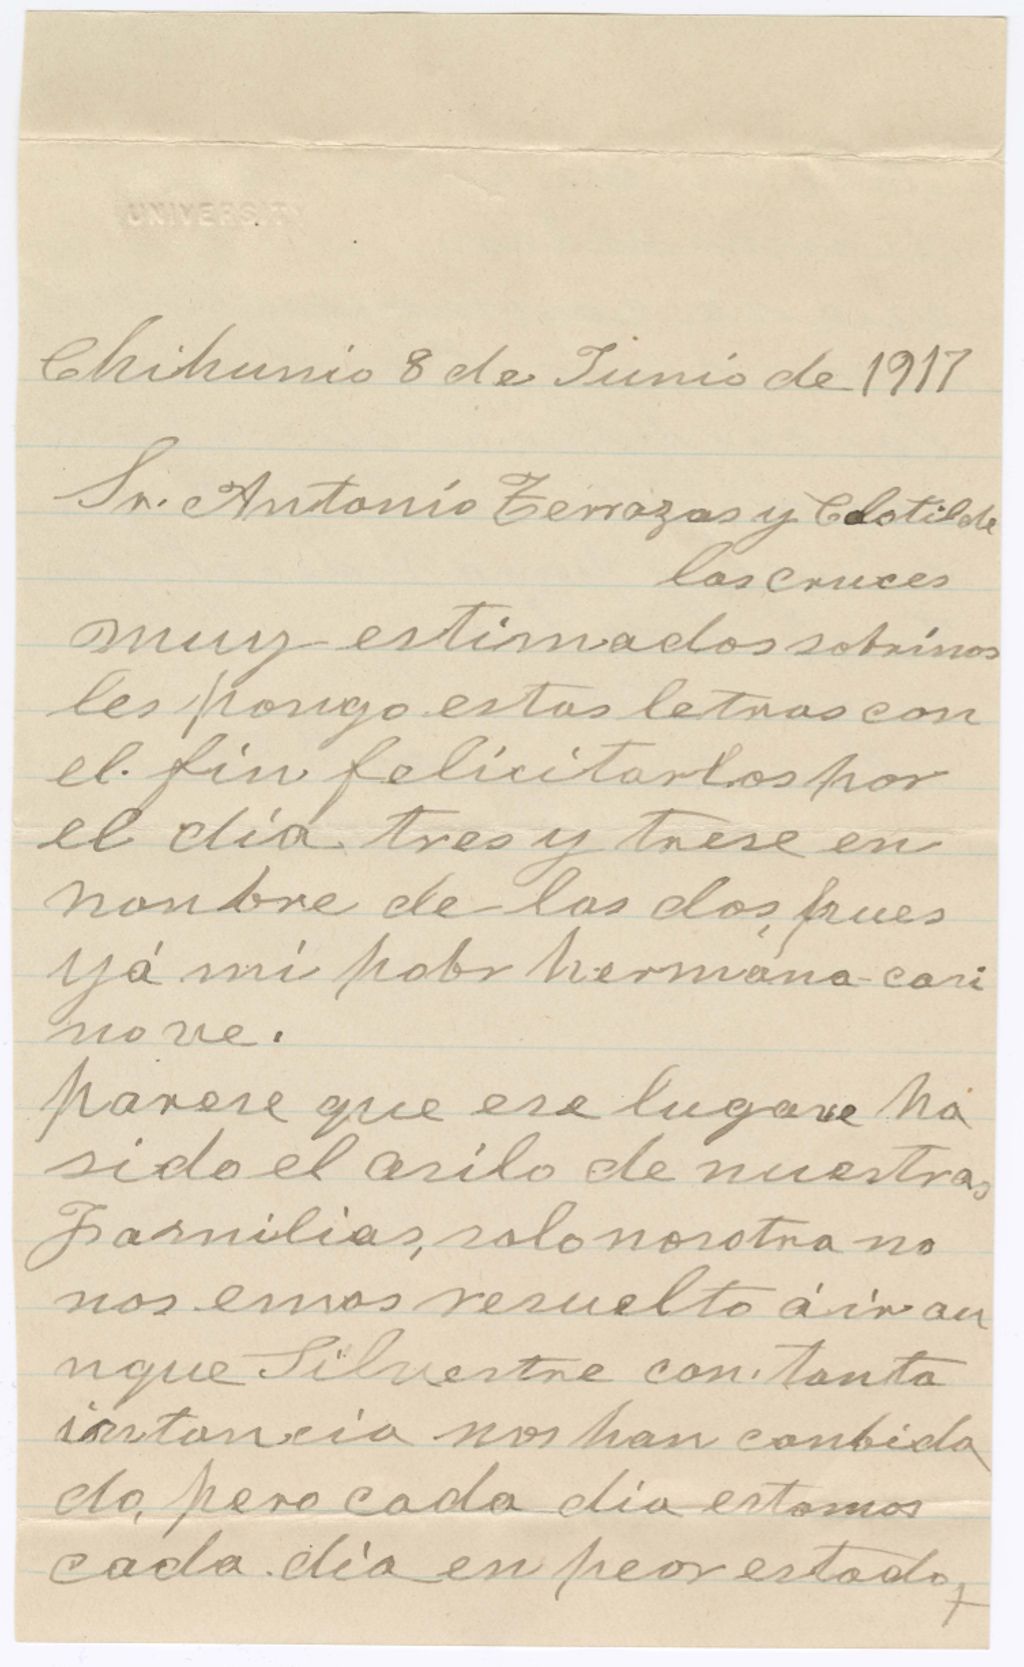 UNIVERSITY
Chihunio 8 de Junio de 1917
Sr. Antonio Terrazas y Clotilde
las cruces
muy estimados sobrinos
les pongo estas letras con
el fin felicitarlos por
el día tres y trese en
nonbre de las dos, pues
yá mi pobr hermána casi
no ve.
parese que ese lugare ha
sido el asilo de nuestras
Familias, solo nosotra no
nos emos resuelto á ir au
nque Silvestre con tanta
intancia nos han conbida
do, pero cada dia estamos
cada día en peor estado,